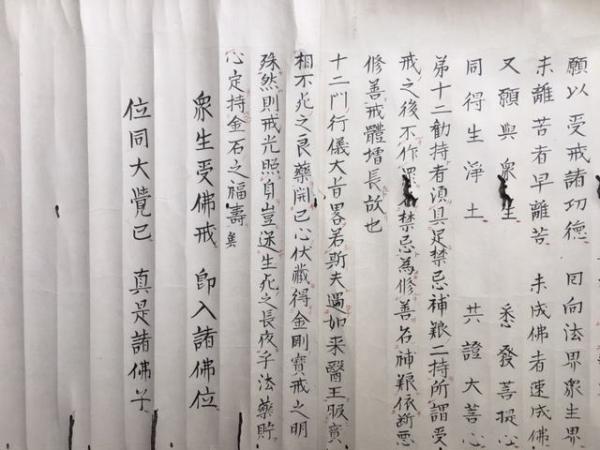 願以受戒諸功德　回向法界衆生界
未離苦者早離苦　未成佛者速成佛
又願與衆生　悉發菩提心
同得生淨土　共證大菩心
第十二勸持者須具足禁忌補艱二持所謂受
戒之後不作名禁忌為修善名補艱依斷悪
修善戒體増長故也
十二门行儀大旨畧若斯夫遇如来醫王服寳
相不死之良藥開己心伏藏得金剛寳戒之明
殊然則戒光照身豈迷生死之長夜乎法藥貯
心定持金石之福壽矣
衆生受佛戒　即入諸佛位
位同大覺已　真是諸佛子